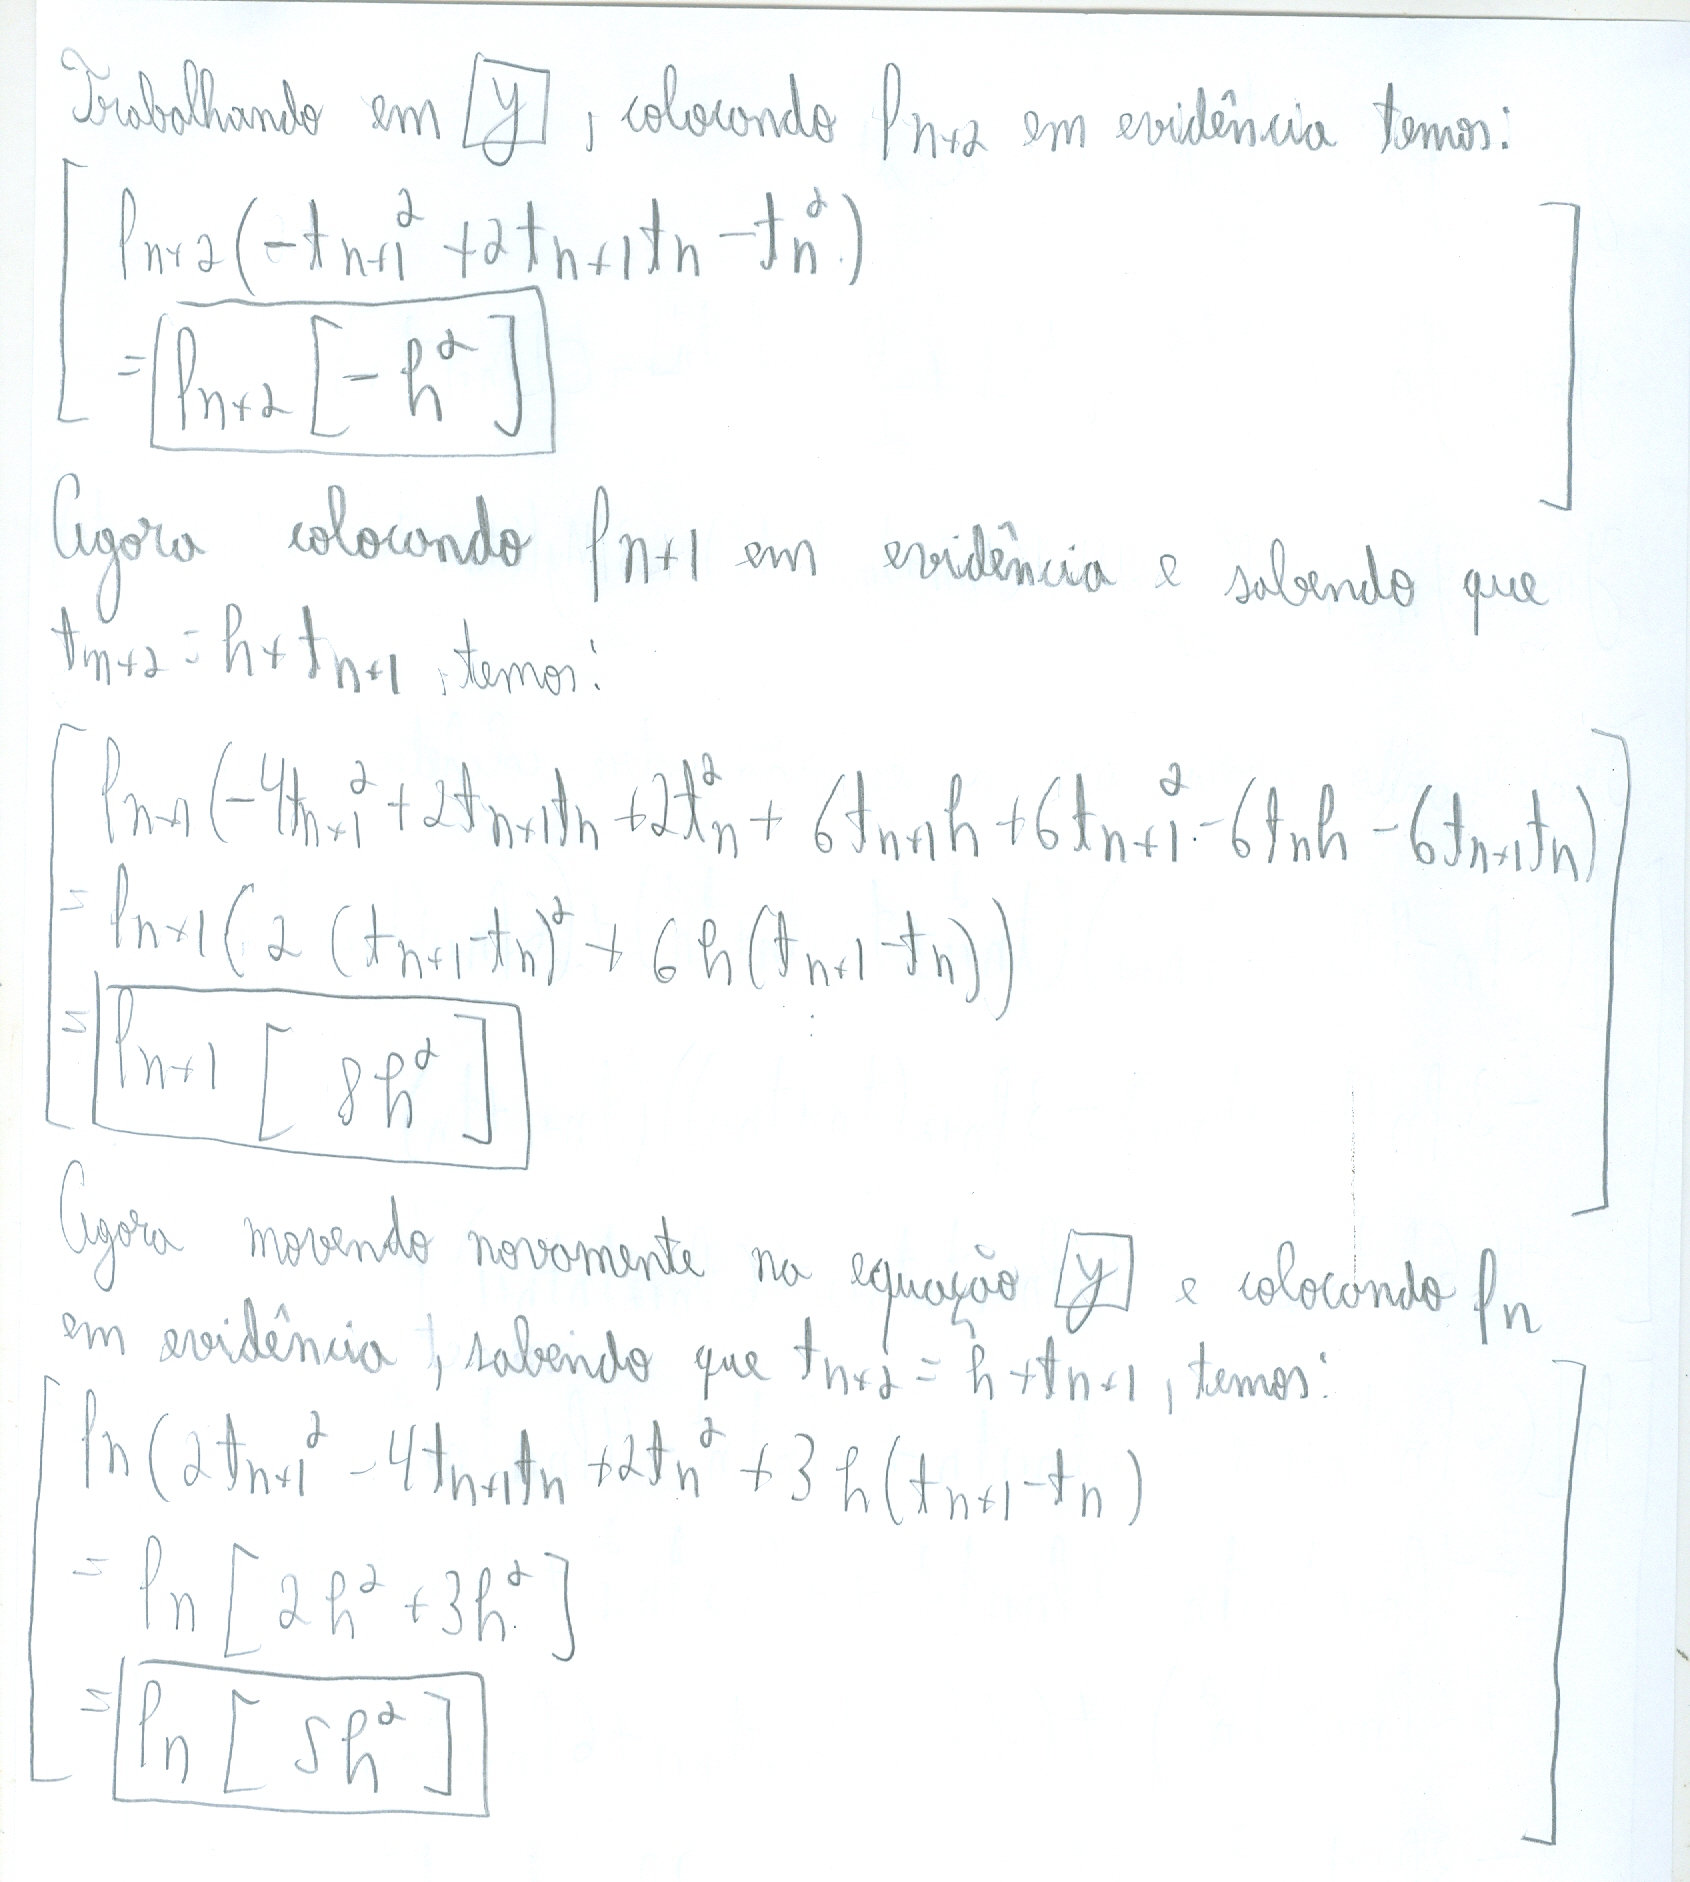 Trabalhando em [y], colocando fn+2 em evidência temos:
fn+2(-tn+1² + 2tn+1tn - tn²)
= fn+2[-h²]
Agora colocando fn+1 em evidência e sabendo que
tn+2 = h + tn+1, temos:
fn+1(-4tn+1² + 2tn+1tn + 2tn² + 6tn+1h + 6tn+1² - 6tnh - 6tn+1tn)
= fn+1(2(tn+1-tn)² + 6h(tn+1-tn))
= fn+1[8h²]
Agora movendo novamente na equação [y] e colocando fn
em evidência, sabendo que tn+2 = h + tn+1, temos:
fn(2tn+1² - 4tn+1tn + 2tn² + 3h(tn+1-tn)
= fn[2h² + 3h²]
= fn[5h²]